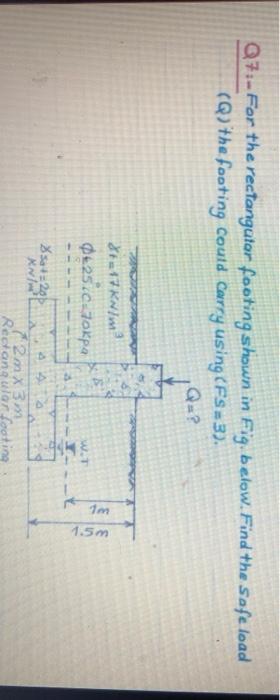 Q7:- For the rectangular footing shown in Fig. below. Find the safe load
(Q) the footing could carry using (FS=3).
Q=?
γt=17 KN/m³
φ=25° C=70kpa
W.T
1m
1.5m
γsat=20
KN/m³
2m x 3m
Rectangular footing.